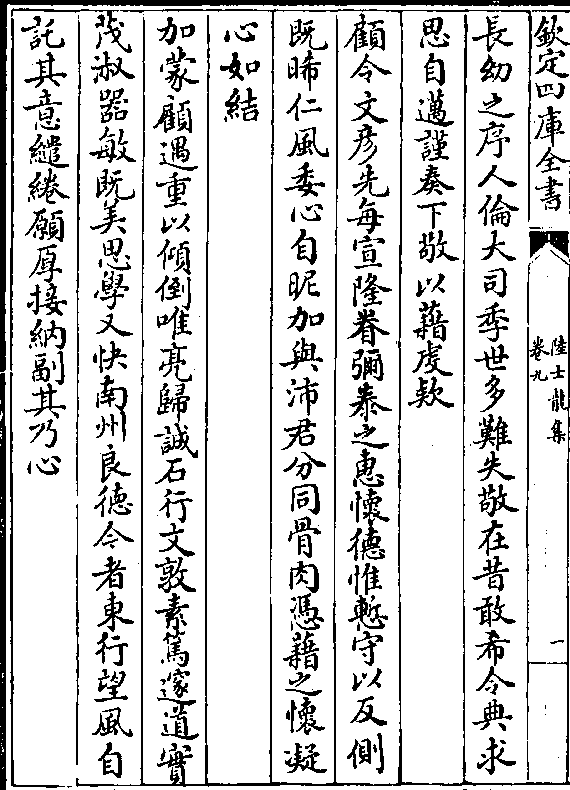 欽定四庫全書
陸士龍集
卷九
一
長幼之序人倫大司季世多難失敬在昔敢希令典求
思自邁謹奏下敬以藉虔欵
顧令文彦先每宣隆眷彌泰之惠懷德惟慙守以反側
既晞仁風委心自昵加與沛君分同骨肉憑藉之懷凝
心如結
加蒙顧遇重以傾倒唯亮歸誠石行文敦素篤邃道實
茂淑器敏既美思學又快南州良德今者東行望風自
託其意繾綣願厚接納副其乃心